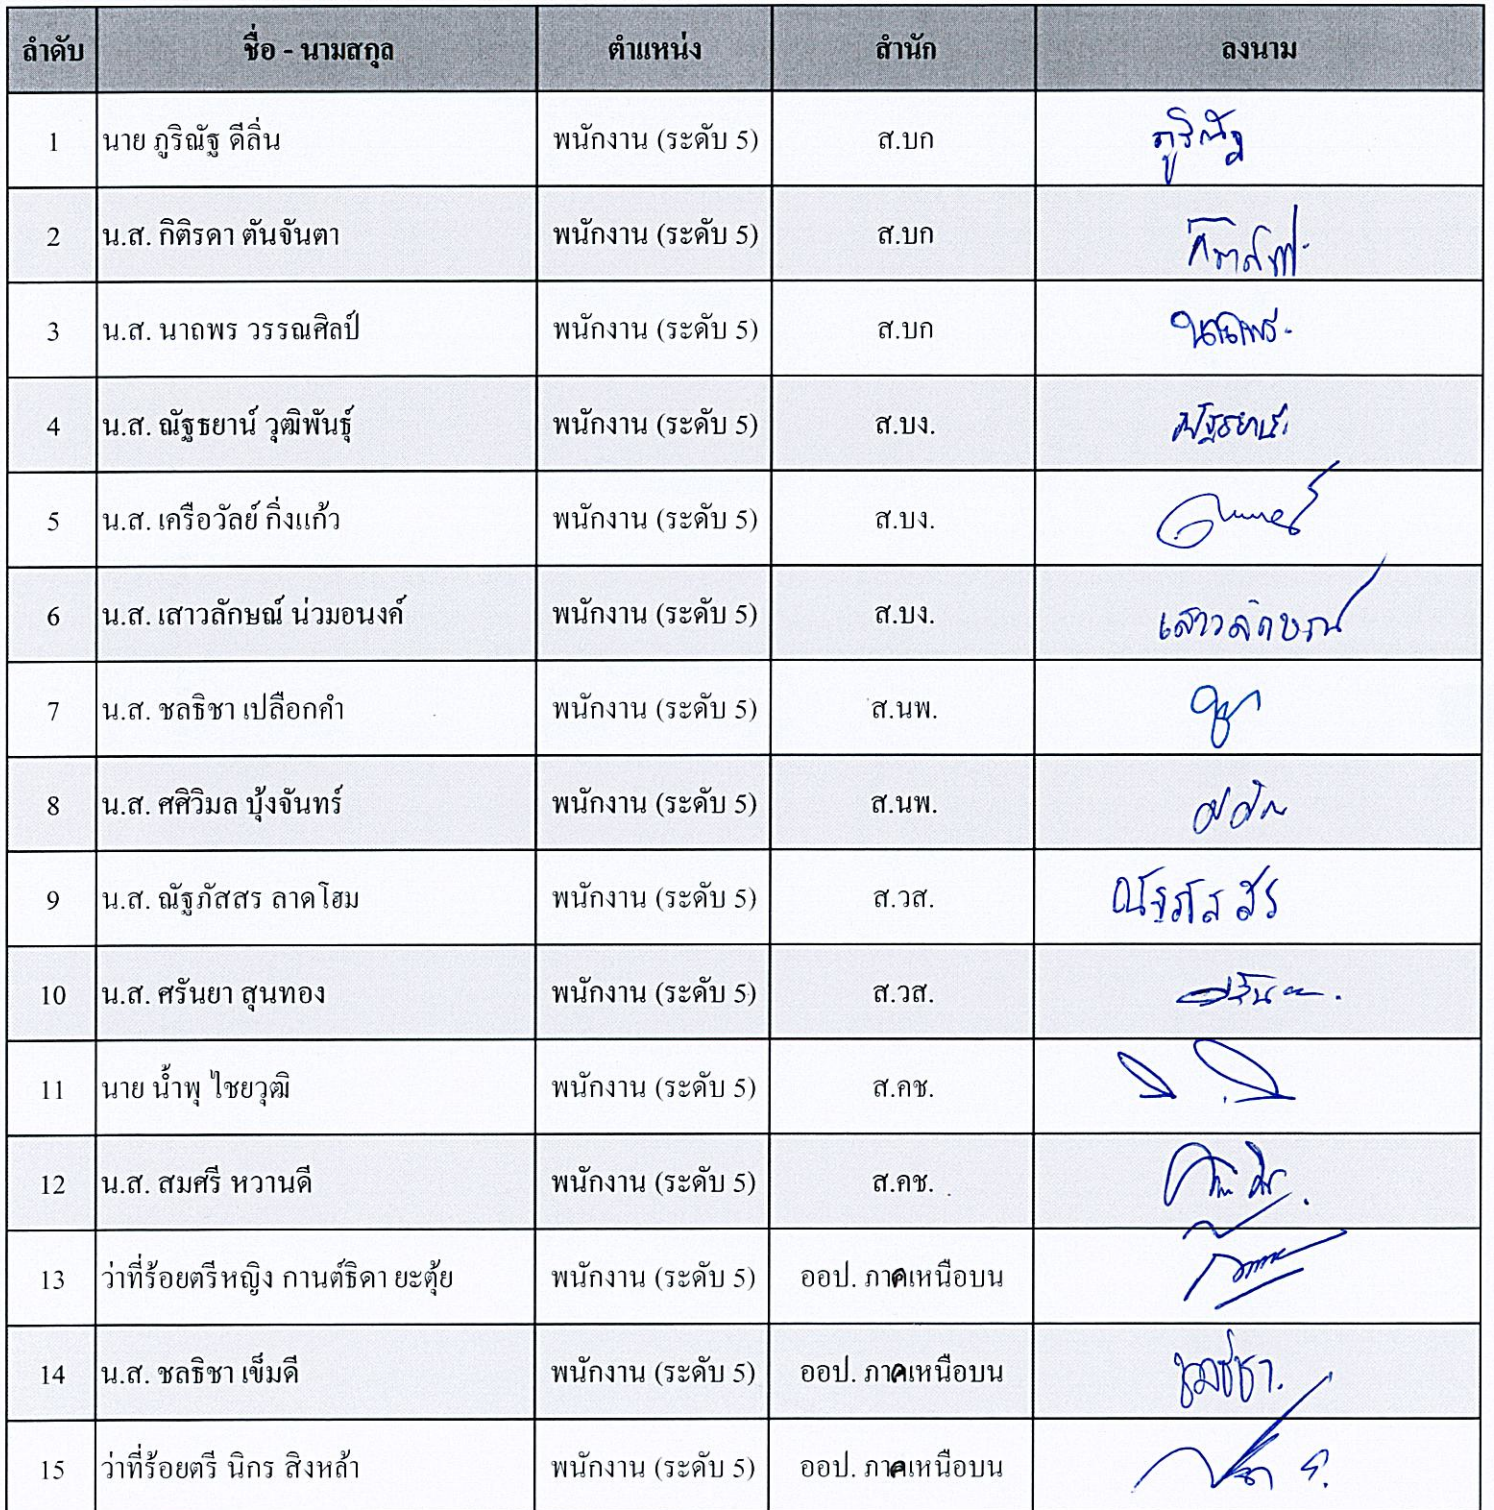 ลำดับ ชื่อ - นามสกุล ตำแหน่ง สำนัก ลงนาม
1 นาย ภูริณัฐ ดีลิ่น พนักงาน (ระดับ 5) ส.บก ภูริณัฐ
2 น.ส. กิติรดา ตันจันตา พนักงาน (ระดับ 5) ส.บก
3 น.ส. นาถพร วรรณศิลป์ พนักงาน (ระดับ 5) ส.บก นาถพร
4 น.ส. ณัฐธยาน์ วุฒิพันธุ์ พนักงาน (ระดับ 5) ส.บง. ณัฐธยาน์
5 น.ส. เครือวัลย์ กิ่งแก้ว พนักงาน (ระดับ 5) ส.บง.
6 น.ส. เสาวลักษณ์ น่วมอนงค์ พนักงาน (ระดับ 5) ส.บง. เสาวลักษณ์
7 น.ส. ชลธิชา เปลือกคำ พนักงาน (ระดับ 5) ส.นพ.
8 น.ส. ศศิวิมล บุ้งจันทร์ พนักงาน (ระดับ 5) ส.นพ.
9 น.ส. ณัฐภัสสร ลาดโฮม พนักงาน (ระดับ 5) ส.วส.
10 น.ส. ศรันยา สุนทอง พนักงาน (ระดับ 5) ส.วส.
11 นาย น้ำพุ ไชยวุฒิ พนักงาน (ระดับ 5) ส.คช.
12 น.ส. สมศรี หวานดี พนักงาน (ระดับ 5) ส.คช.
13 ว่าที่ร้อยตรีหญิง กานต์ธิดา ยะตุ้ย พนักงาน (ระดับ 5) ออป. ภาคเหนือบน
14 น.ส. ชลธิชา เข็มดี พนักงาน (ระดับ 5) ออป. ภาคเหนือบน
15 ว่าที่ร้อยตรี นิกร สิงหล้า พนักงาน (ระดับ 5) ออป. ภาคเหนือบน